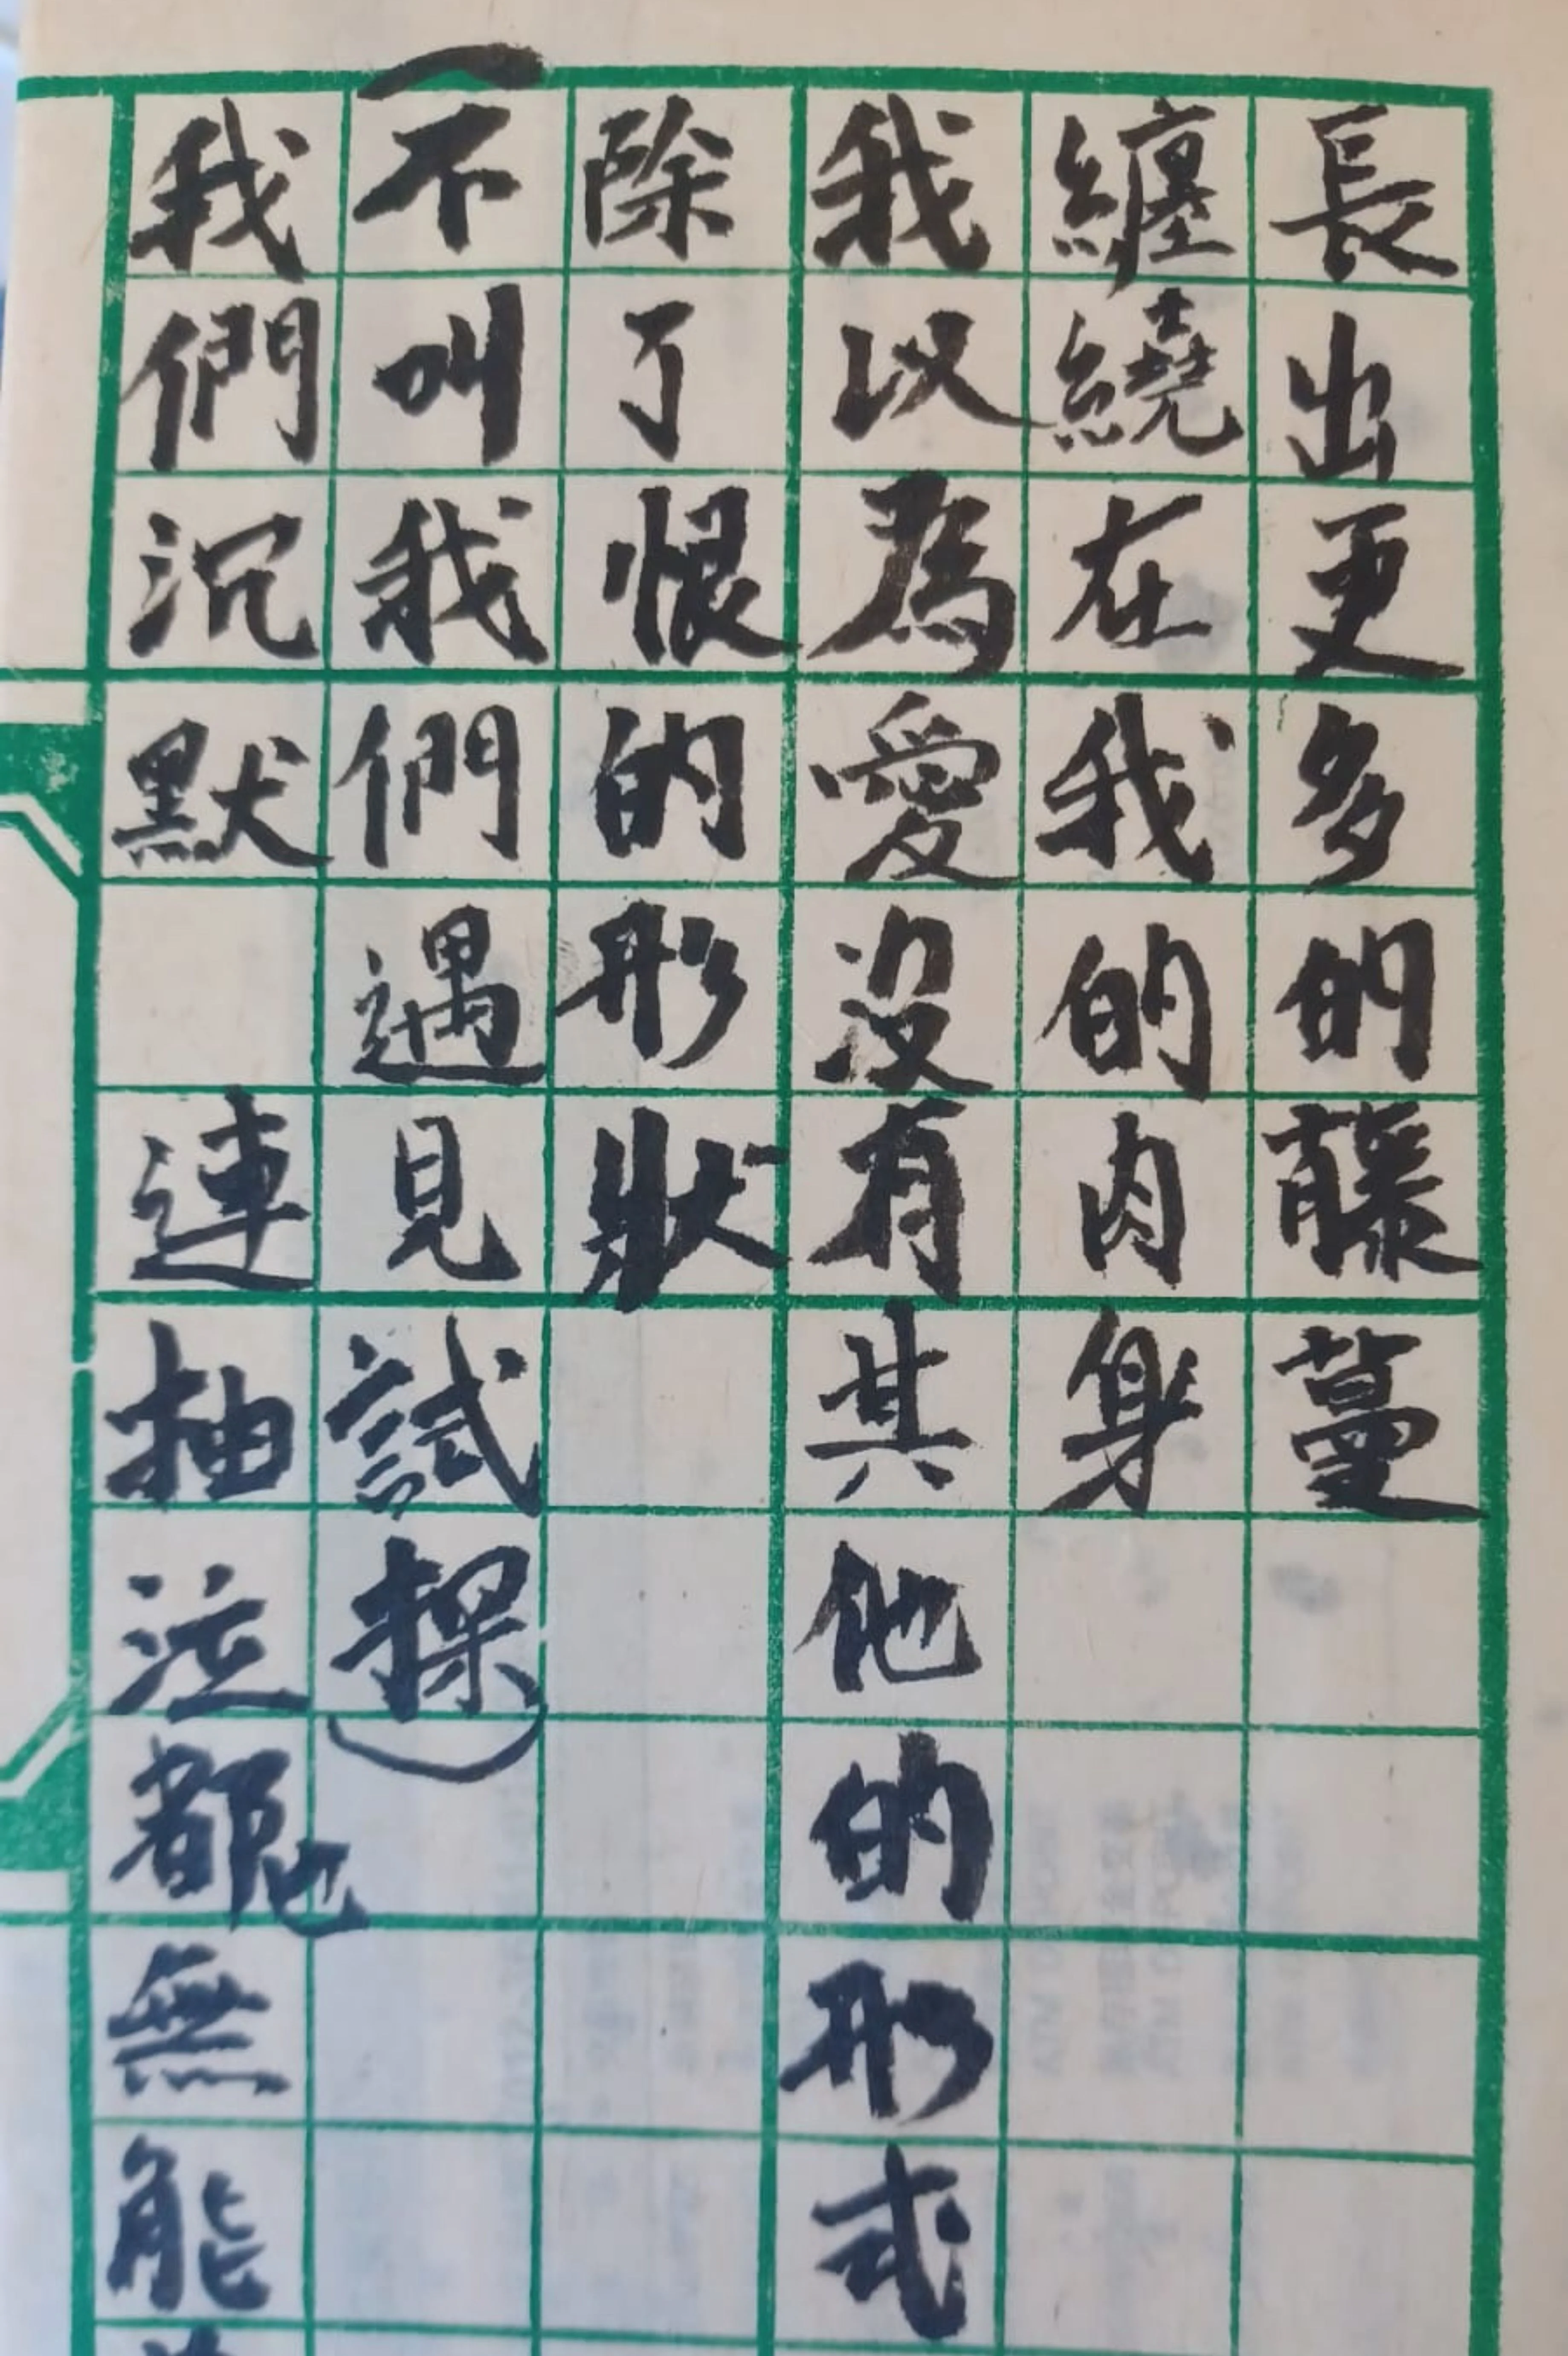 長出更多的藤蔓
纏繞在我的肉身
我以為愛沒有其他的形式
除了恨的形狀
（不叫我們遇見試探）
我們沉默　連抽泣都也無能